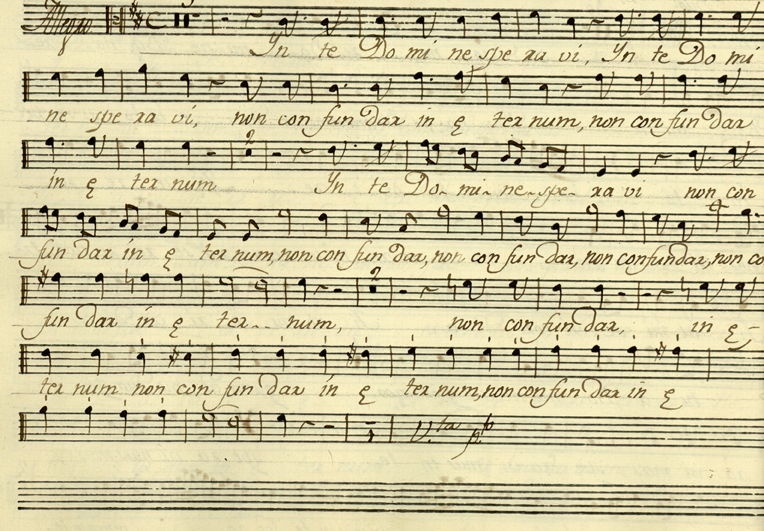 Allegro
Yn te Do mi ne spe ra vi, Yn te Do mi
ne spe ra vi, non con fun dar in ę ter num, non con fun dar
in ę ter num Yn te Do- mi- ne- spe- ra vi non con
fun dar in ę ter num, non con fun dar, non con fun dar, non confundar, non co
fun dar in ę ter- num, non con fun dar, in ę-
ter num non con fun dar in ę ter num, non con fun dar in ę
V.ta